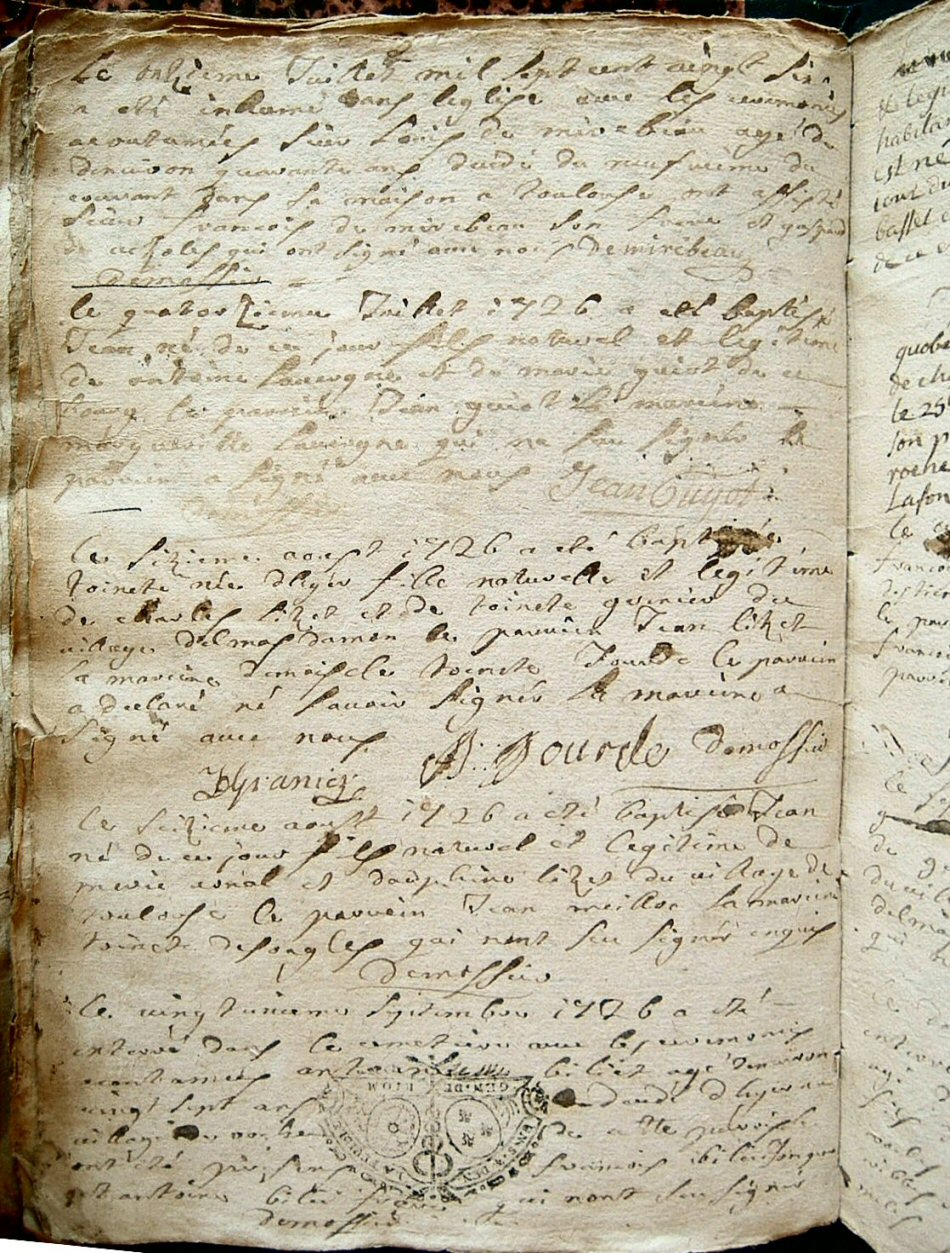 Le onzieme Juillet mil sept cent vingt six
a eté inhumé dans leglise avec les ceremonies
acoutumées sieur Louis de mirebeau agé de
denviron quarante ans decedé du neufvieme du
courant dans sa maison a toulouse ont assisté
sieur francois de mirebeau son frere et gaspard
qui ont signé avec nous Demirebeau
Demossier
le quatorzieme Juillet 1726 a eté baptisé
Jean né de ce jour fils naturel et legitime
de antoine Lavergne et de marie guiot de ce
bourg le parrain Jean guiot La marrine
margueritte Lavergne qui na seu signer le
parrain a signé avec nous Jean Guyot
le sizieme aoust 1726 a eté baptisée
toinete née dhyer fille naturelle et legitime
de charles lizet et de toinete grenier du
village delmas damon le parrain Jean lizet
la marrine demoiselle toinete Jourde le parrain
a declaré né scavoir signer la marrine a
signé avec nous A. Jourde Demossier
DGranier
le seizieme aoust 1726 a été baptisé Jean
né de ce jour fils naturel et legitime de
et dauphine lizet du village de
toulouse le parrain Jean meillac la marrine
toinete desongles qui nont seu signer enquis
Demossier
le vingtunieme septembre 1726 a eté
enterré dans le cemetiere avec les ceremonies
acoutumées agé denviron
vingt sept ans decedé dhyer au
village de de cette paroisse
ont eté presens francois
et antoine qui nont seu signer
demossier